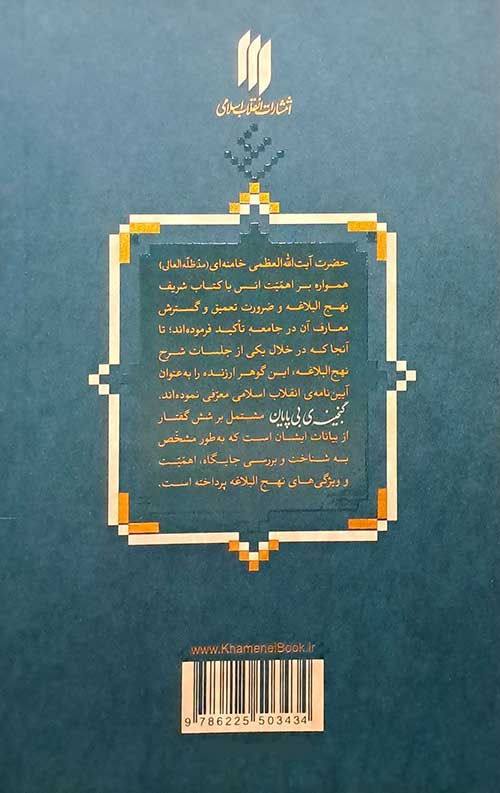 انتشارات انقلاب اسلامی
حضرت آیت‌الله‌العظمی خامنه‌ای (مدّظلّه‌العالی)
همواره بر اهمّیّت انس با کتاب شریف
نهج البلاغه و ضرورت تعمیق و گسترش
معارف آن در جامعه تأکید فرموده‌اند؛ تا
آنجا که در خلال یکی از جلسات شرح
نهج‌البلاغه، این گوهر ارزنده را به‌عنوان
آیین‌نامه‌ی انقلاب اسلامی معرّفی نموده‌اند.
گنجینه‌ی بی‌پایان مشتمل بر شش گفتار
از بیانات ایشان است که به‌طور مشخّص
به شناخت و بررسی جایگاه، اهمّیّت
و ویژگی‌های نهج البلاغه پرداخته است.
www.KhameneiBook.ir
9 786225 503434